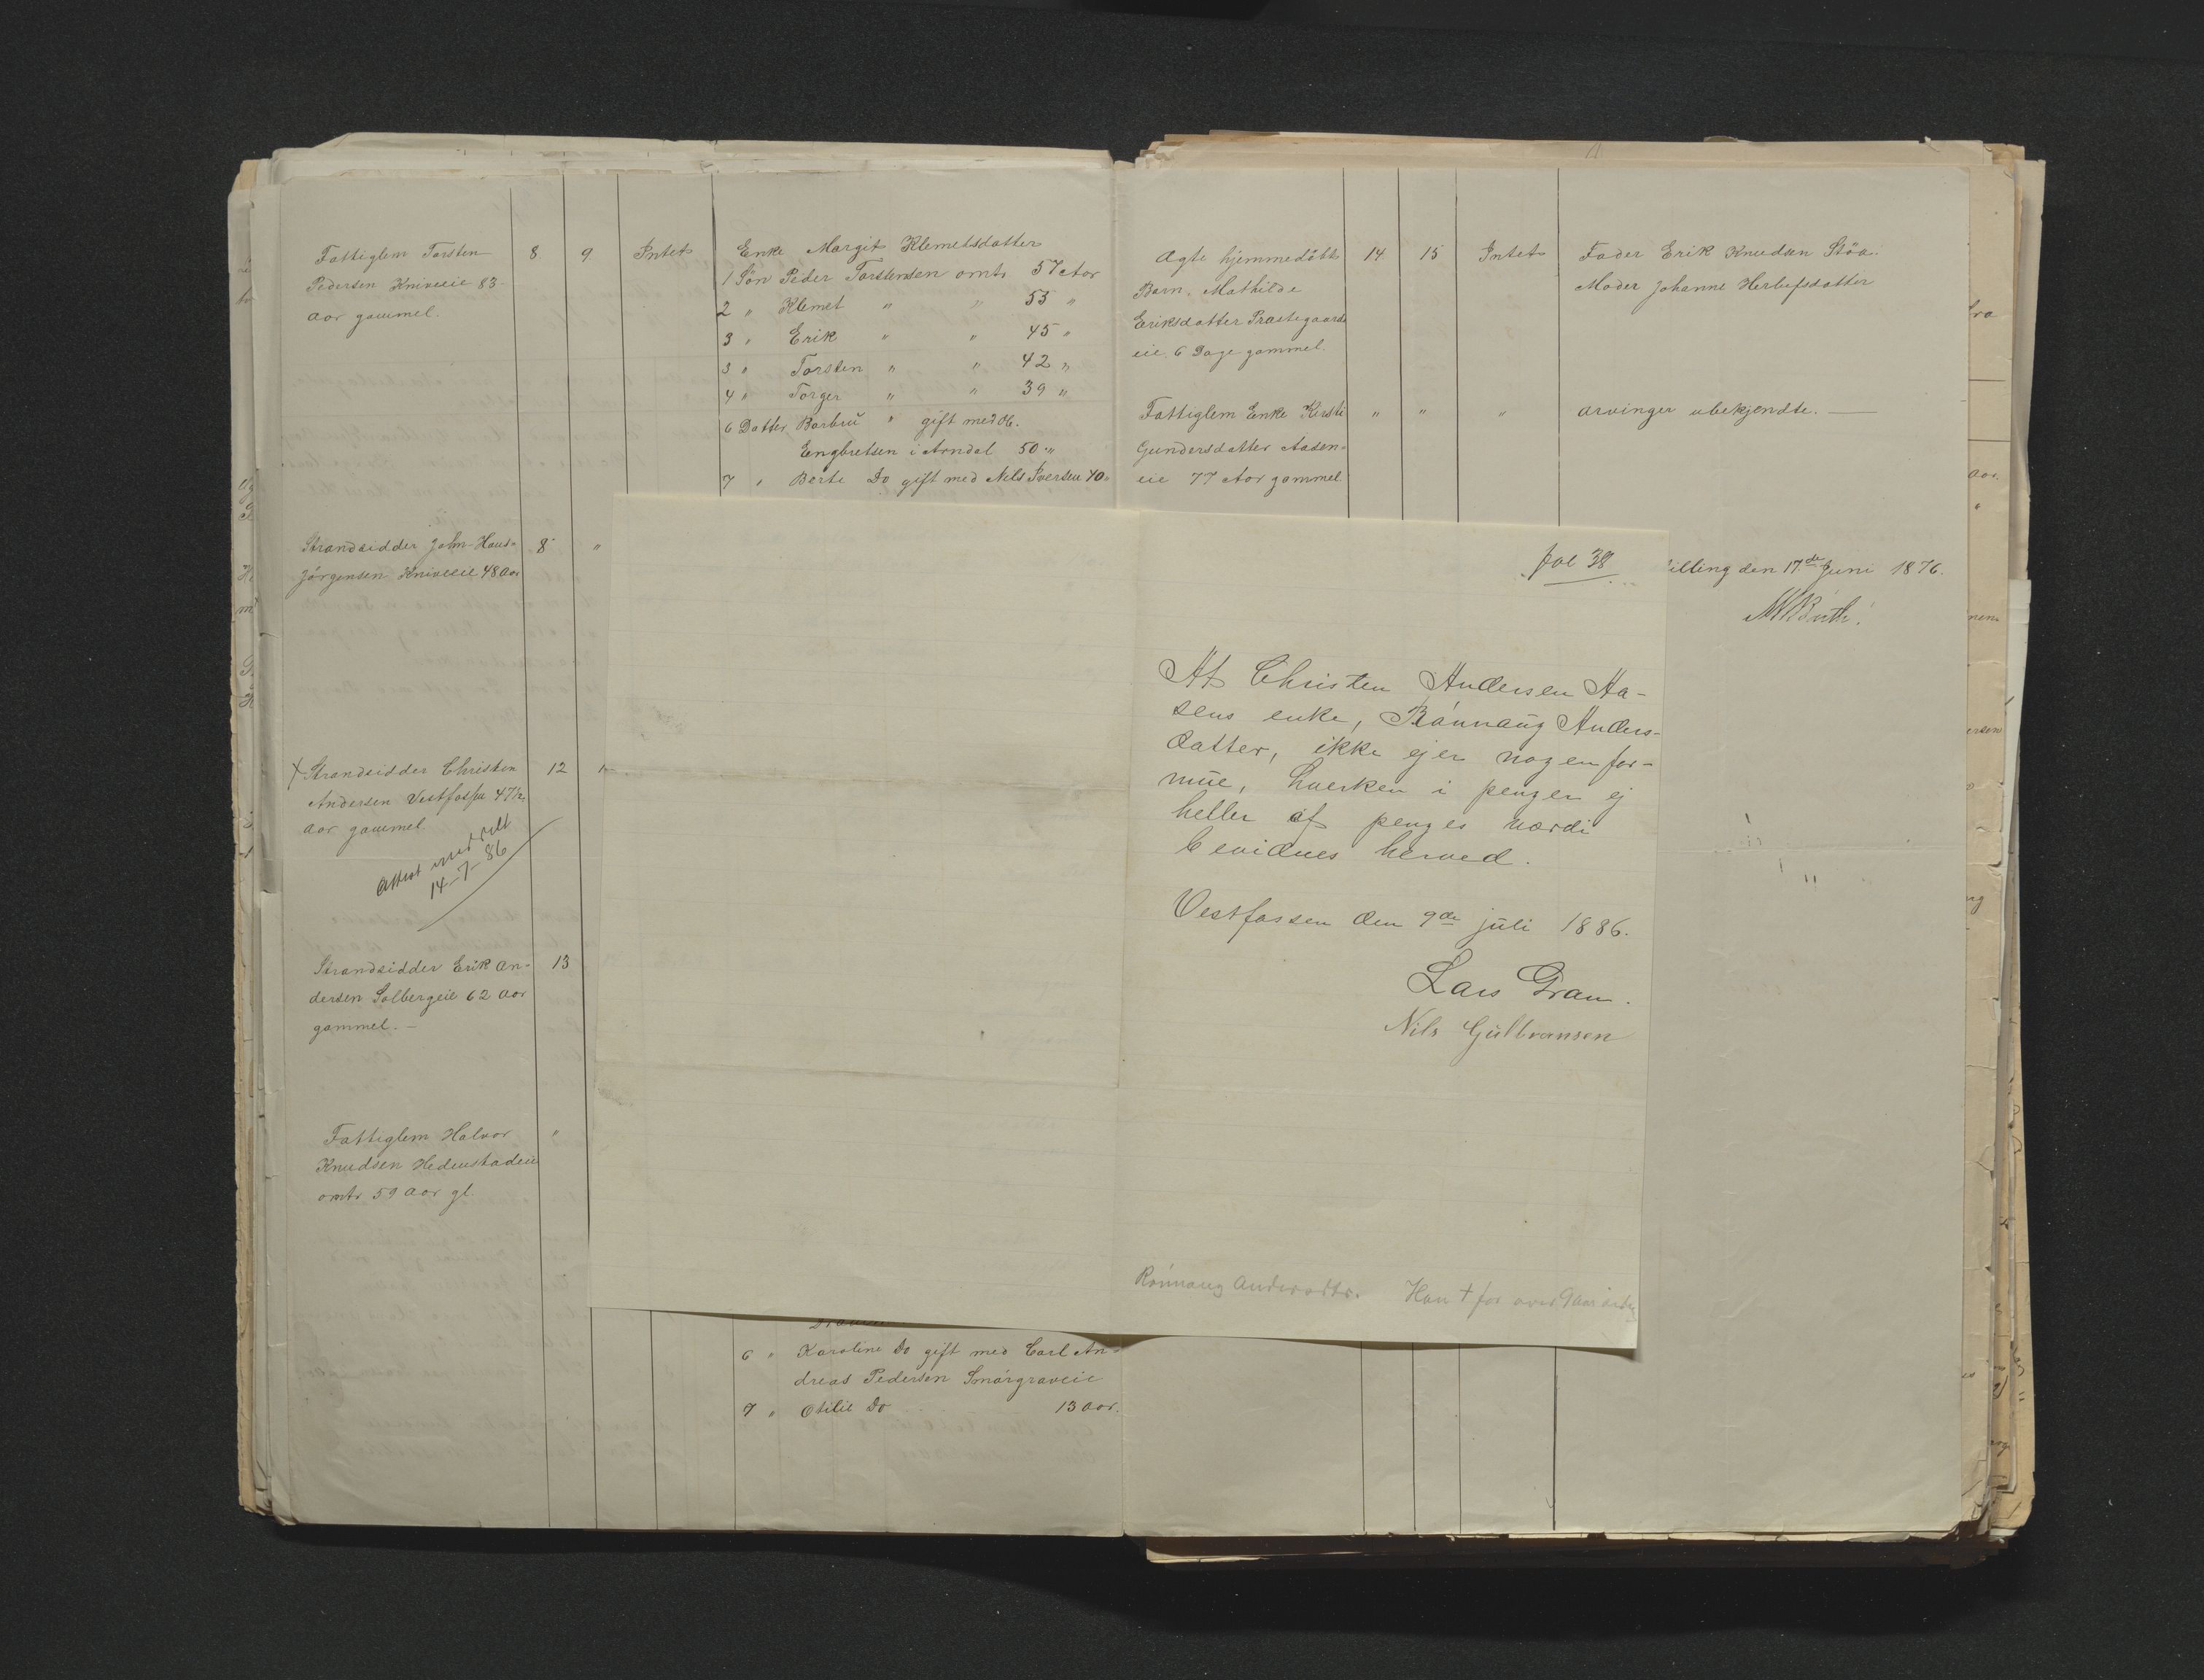 Fattiglem Torsten 8 9 Intet Enke Margit Klemetsdatter
Pedersen Kniveeie 83 1 Søn Peder Torstensen omtr 57 Aar
aar gammel. 2 " Klemet " " 53 "
3 " Erik " " 45 "
3 " Torsten " " 42 "
4 " Torger " " 39 "
6 Datter Barbru " gift med
Engbretsen i Arndal 50 "
7 " Berte Do gift med Nils Iversen 40 "
Strandsidder John Hans- 8 "
Jørgensen Kniveeie 48 Aar
+ Strandsidder Christen 12
Andersen Vestfossen 47½
aar gammel
Attest meddelt
14-7-86
Strandsidder Erik An- 13
dersen Solbergeie 62 aar
gammel. —
Fattiglem Halvor "
Knudsen Hedenstadeie
omtr 59 aar gl.
6 " Karoline Do gift med Carl An-
dreas Pedersen Smørgraveie
7 " Otilie Do 13 aar.
Ægte hjemmedøbt 14 15 Intet Fader Erik Knudsen Støa.
Barn. Mathilde Moder Johanne
Eriksdatter Præstegaards
eie. 6 Dage gammel.
Fattiglem Enke Kirsti " " " arvinger ubekjendte. —
Gundersdatter Aasen-
eie 77 Aar gammel.
den 17de Juni 1876.
fol 38
At Christen Andersen Aa-
sens enke, Rønnaug Anders-
datter, ikke ejer nogen for-
mue, hverken i penger ej
heller af penges værdi
bevidnes herved.
Vestfossen den 9de juli 1886.
Lars Gram.
Nils Gulbransen
Rønnaug Andersdtr. Han † for over 9 aar siden